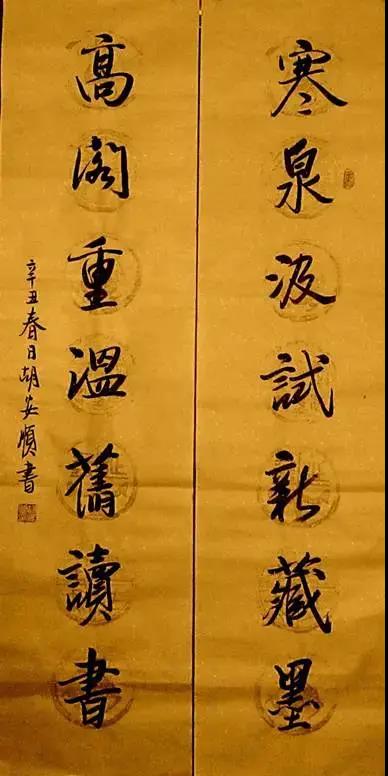 寒泉汲試新藏墨
高閣重溫舊讀書
辛丑春日胡安順書